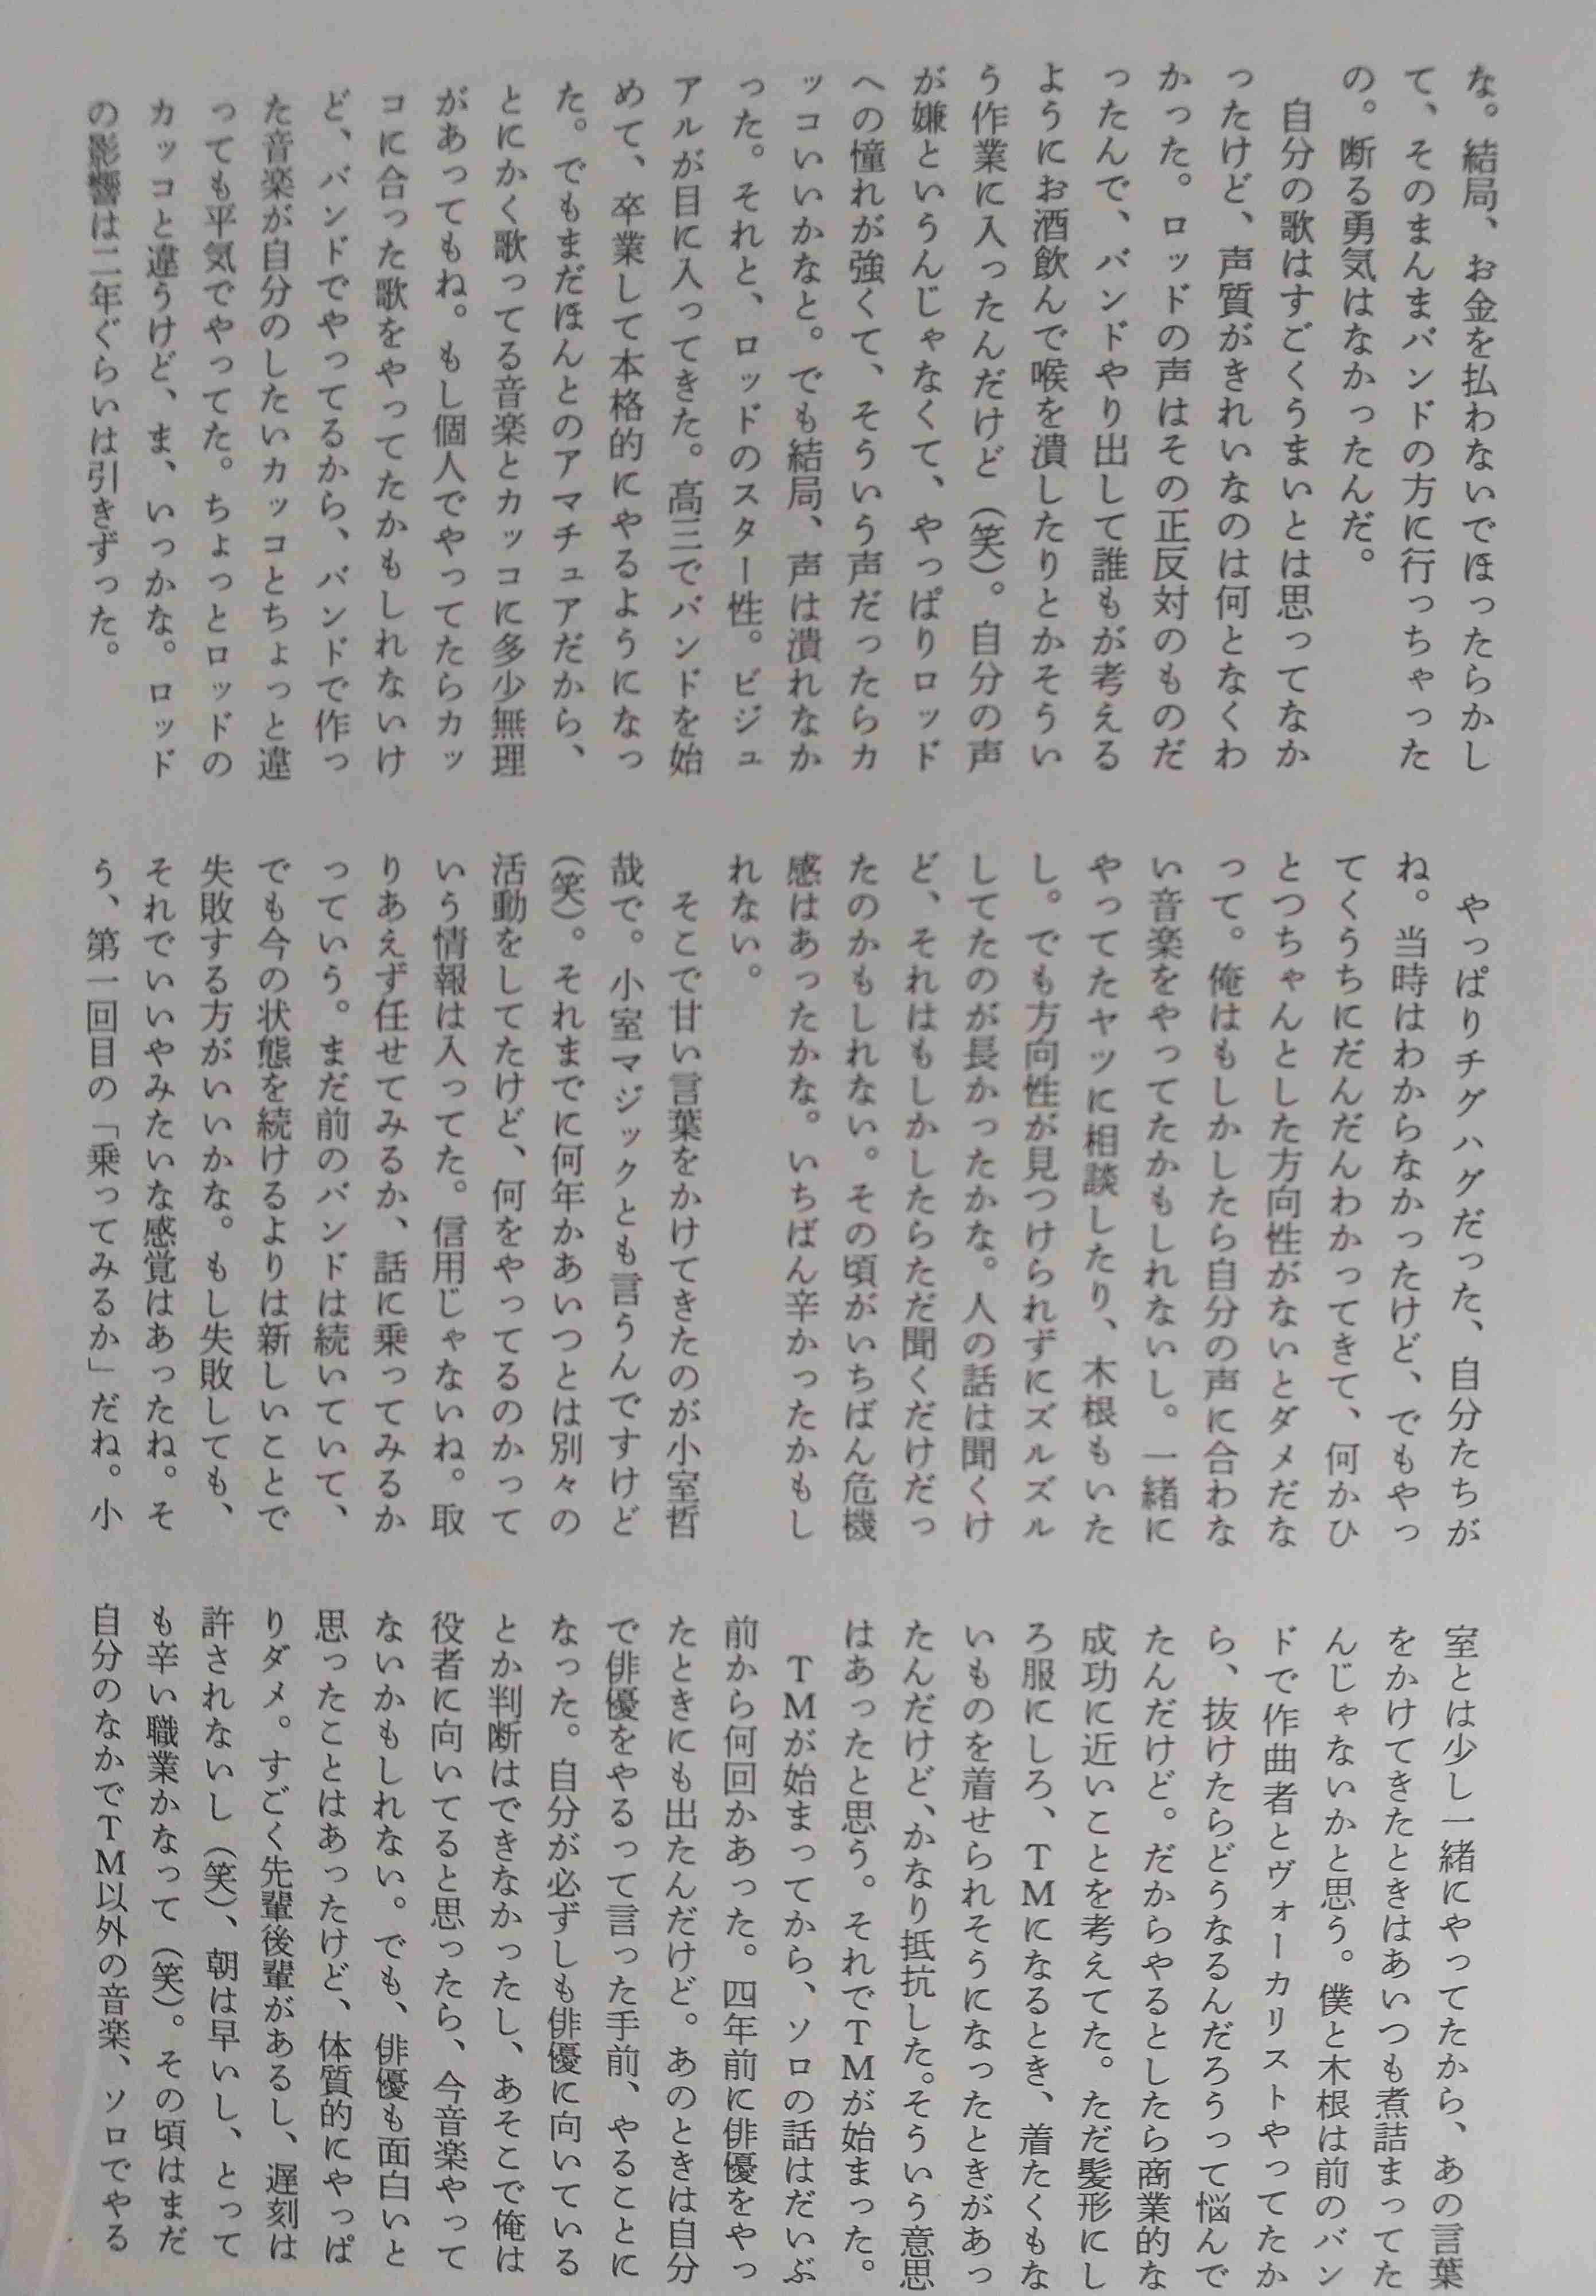 な。結局、お金を払わないでほったらかし
て、そのまんまバンドの方に行っちゃった
の。断る勇気はなかったんだ。
自分の歌はすごくうまいとは思ってなか
ったけど、声質がきれいなのは何となくわ
かった。ロッドの声はその正反対のものだ
ったんで、バンドやり出して誰もが考える
ようにお酒飲んで喉を潰したりとかそうい
う作業に入ったんだけど（笑）。自分の声
が嫌というんじゃなくて、やっぱりロッド
への憧れが強くて、そういう声だったらカ
ッコいいかなと。でも結局、声は潰れなか
った。それと、ロッドのスター性。ビジュ
アルが目に入ってきた。高三でバンドを始
めて、卒業して本格的にやるようになっ
た。でもまだほんとのアマチュアだから、
とにかく歌ってる音楽とカッコに多少無理
があってもね。もし個人でやってたらカッ
コに合った歌をやってたかもしれないけ
ど、バンドでやってるから、バンドで作っ
た音楽が自分のしたいカッコとちょっと違
っても平気でやってた。ちょっとロッドの
カッコと違うけど、ま、いっかな。ロッド
の影響は二年ぐらいは引きずった。
やっぱりチグハグだった、自分たちが
ね。当時はわからなかったけど、でもやっ
てくうちにだんだんわかってきて、何かひ
とつちゃんとした方向性がないとダメだな
って。俺はもしかしたら自分の声に合わな
い音楽をやってたかもしれないし。一緒に
やってたヤツに相談したり、木根もいた
し。でも方向性が見つけられずにズルズル
してたのが長かったかな。人の話は聞くけ
ど、それはもしかしたらただ聞くだけだっ
たのかもしれない。その頃がいちばん危機
感はあったかな。いちばん辛かったかもし
れない。
そこで甘い言葉をかけてきたのが小室哲
哉で。小室マジックとも言うんですけど
（笑）。それまでに何年かあいつとは別々の
活動をしてたけど、何をやってるのかって
いう情報は入ってた。信用じゃないね。取
りあえず任せてみるか、話に乗ってみるか
っていう。まだ前のバンドは続いていて、
でも今の状態を続けるよりは新しいことで
失敗する方がいいかな。もし失敗しても、
それでいいやみたいな感覚はあったね。そ
う、第一回目の「乗ってみるか」だね。小
室とは少し一緒にやってたから、あの言葉
をかけてきたときはあいつも煮詰まってた
んじゃないかと思う。僕と木根は前のバン
ドで作曲者とヴォーカリストやってたか
ら、抜けたらどうなるんだろうって悩んで
たんだけど。だからやるとしたら商業的な
成功に近いことを考えてた。ただ髪形にし
ろ服にしろ、TMになるとき、着たくもな
いものを着せられそうになったときがあっ
たんだけど、かなり抵抗した。そういう意思
はあったと思う。それでTMが始まった。
TMが始まってから、ソロの話はだいぶ
前から何回かあった。四年前に俳優をやっ
たときにも出たんだけど。あのときは自分
で俳優をやるって言った手前、やることに
なった。自分が必ずしも俳優に向いている
とか判断はできなかったし、あそこで俺は
役者に向いてると思ったら、今音楽やって
ないかもしれない。でも、俳優も面白いと
思ったことはあったけど、体質的にやっぱ
りダメ。すごく先輩後輩があるし、遅刻は
許されないし（笑）、朝は早いし、とって
も辛い職業かなって（笑）。その頃はまだ
自分のなかでTM以外の音楽、ソロでやる